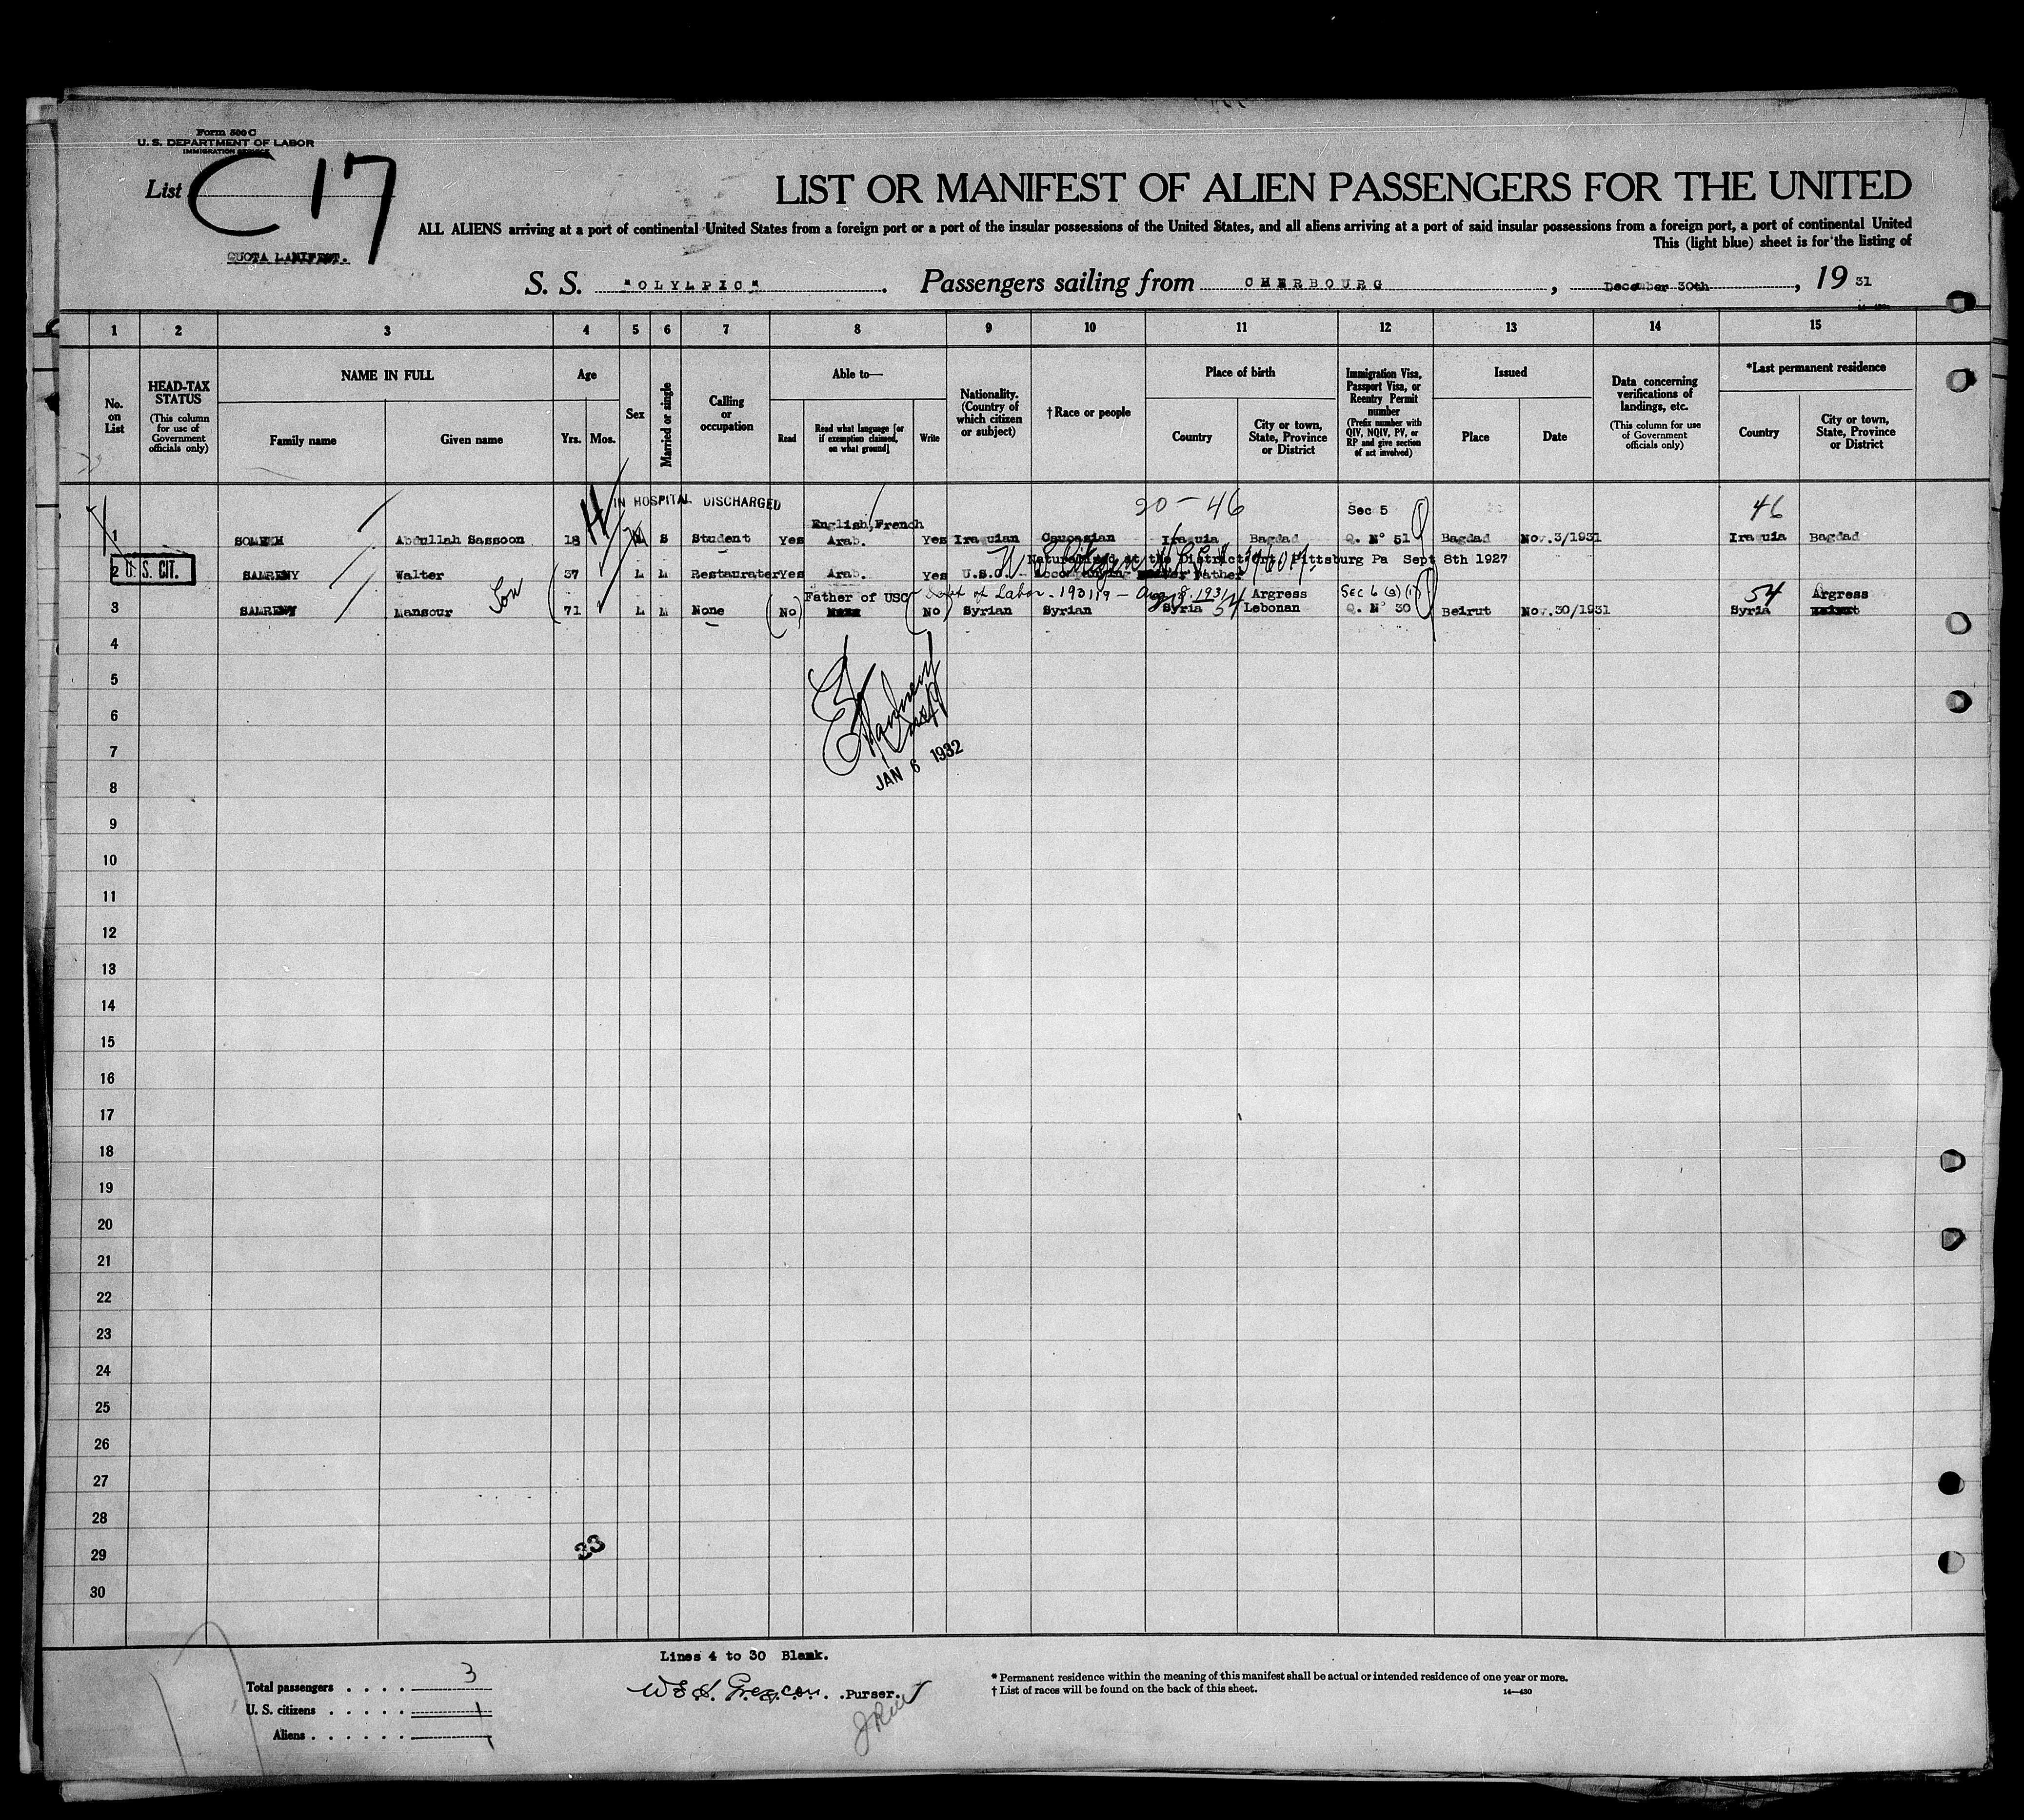 Form 500 C
U. S. DEPARTMENT OF LABOR
IMMIGRATION SERVICE
List C 17
QUOTA MANIFEST.
LIST OR MANIFEST OF ALIEN PASSENGERS FOR THE UNITED
ALL ALIENS arriving at a port of continental United States from a foreign port or a port of the insular possessions of the United States, and all aliens arriving at a port of said insular possessions from a foreign port, a port of continental United
This (light blue) sheet is for the listing of
S. S. "OLYMPIC" . Passengers sailing from CHERBOURG , December 30th , 19 31
1 2 3 4 5 6 7 8 9 10 11 12 13 14 15
No. on List
HEAD-TAX STATUS
(This column for use of Government officials only)
NAME IN FULL
Family name Given name
Age
Yrs. Mos.
Sex
Married or single
Calling or occupation
Able to—
Read
Read what language [or if exemption claimed, on what ground]
Write
Nationality. (Country of which citizen or subject)
†Race or people
Place of birth
Country
City or town, State, Province or District
Immigration Visa, Passport Visa, or Reentry Permit number
(Prefix number with QIV, NQIV, PV, or RP and give section of act involved)
Issued
Place Date
Data concerning verifications of landings, etc.
(This column for use of Government officials only)
*Last permanent residence
Country
City or town, State, Province or District
IN HOSPITAL DISCHARGED 20 - 46 Sec 5 46
English, French
1 SOMEKH Abdullah Sassoon 18 M S Student Yes Arab. Yes Iraquian Caucasian Iraquia Bagdad Q. Nº 51 Bagdad Nov.3/1931 Iraquia Bagdad
Pittsburg Pa Sept 8th 1927
2 U. S. CIT. Walter 37 M M Restaurater Yes Arab. Yes U.S.C. Accompanying Father
Son Father of USC Dept of Labor - 193119 - Aug. 8. 1931 54 Argress Sec 6 (a) (1) 54 Argress
3 Mansour 71 M M None (No) (No) Syrian Syrian Syria Lebonan Q. Nº 30 Beirut Nov.30/1931 Syria
4
5
6
7
JAN 6 1932
8
9
10
11
12
13
14
15
16
17
18
19
20
21
22
23
24
25
26
27
28
29 33
30
Lines 4 to 30 Blank.
Total passengers . . . . 3
U. S. citizens . . . . . 1
Aliens . . . . . .
Purser.
* Permanent residence within the meaning of this manifest shall be actual or intended residence of one year or more.
† List of races will be found on the back of this sheet.
14—430